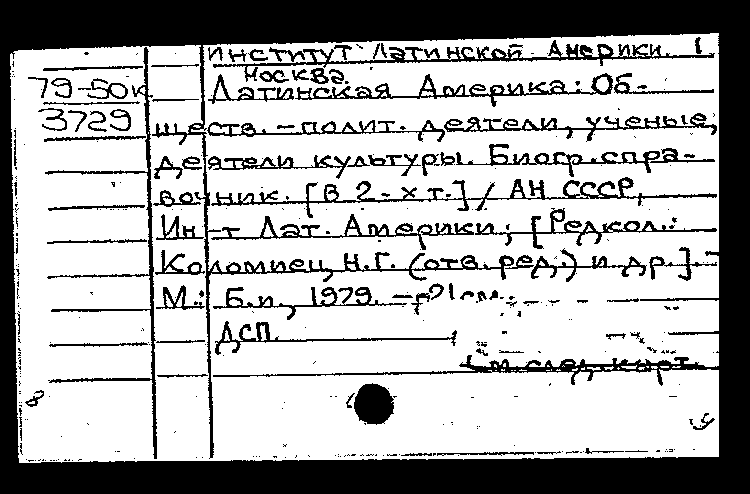 Институт Латинской Америки. 1
Москва.
79-50к Латинская Америка: Об-
3729 ществ.-полит. деятели, ученые,
деятели культуры. Биогр. спра-
вочник. [В 2-х т.] / АН СССР,
Ин-т Лат. Америки; [Редкол.:
Коломиец, Н.Г. (отв. ред.) и др.]. -
М.: Б.и., 1979. - 21 см.
ДСП.
См. след. карт.
8